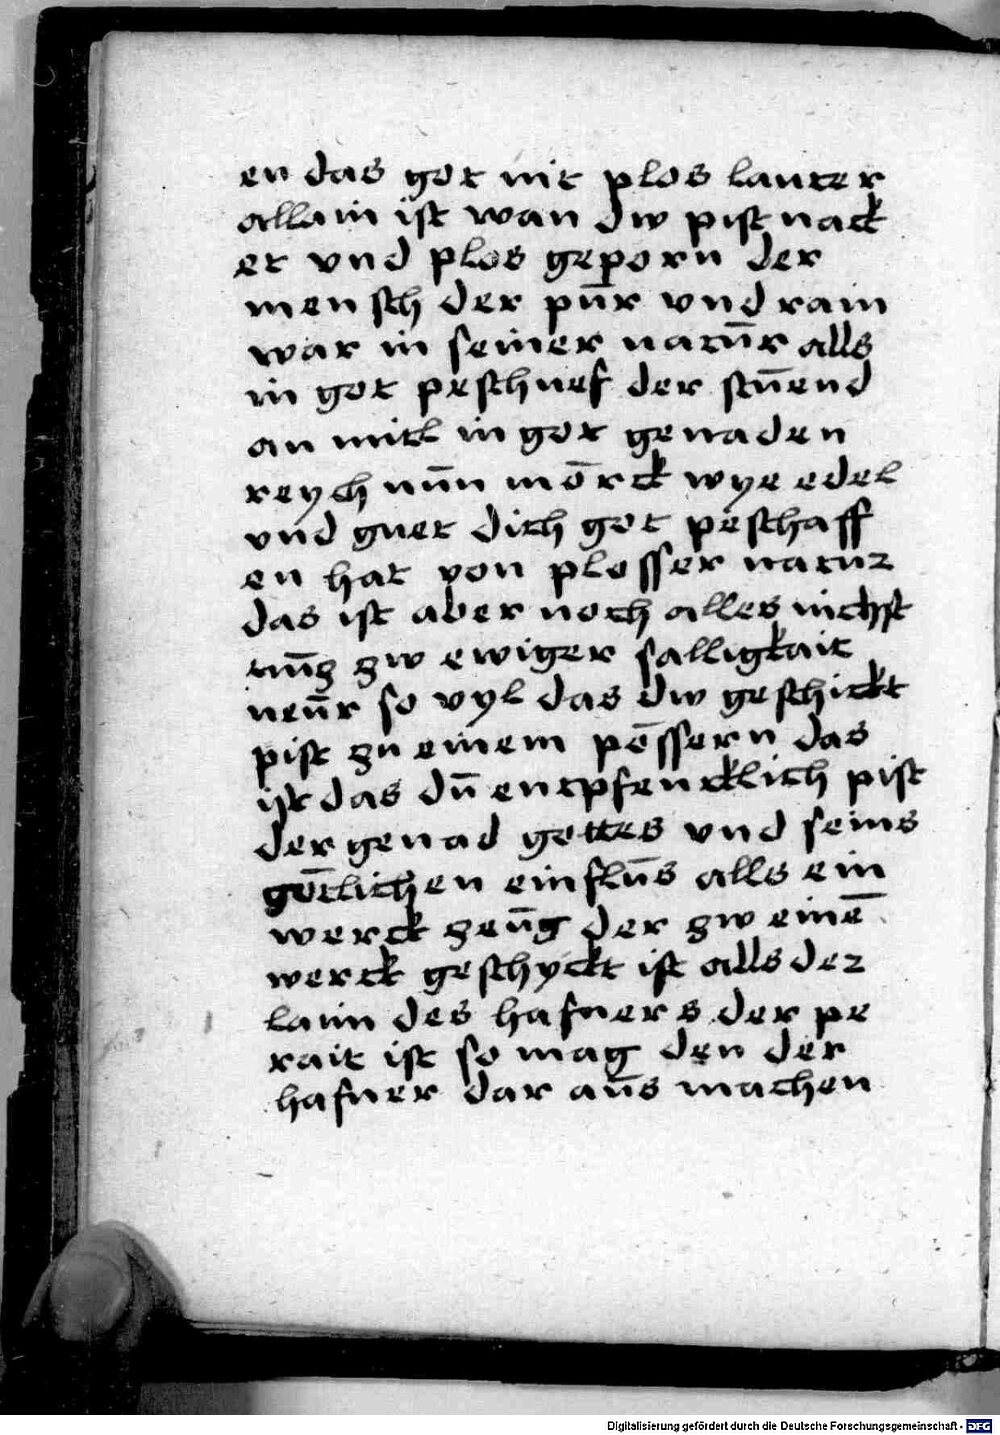 en das got nit plos lauter
allain ist wan dw pist nack
et vnd plos geporn der
mensch der pūr vnd rain
war in seiner natūr alls
in got peschuef der stūend
an mitl in got genaden
reych nūn mōrck wye edel
vnd guet dich got peschaff
en hat von plosser natur
das ist aber noch alles nichst
nūz zw ewiger salligkait
neūr so vyl das dw geschickt
pist zu einem pōssern das
ist das dū entpfencklich pist
der genad gottes vnd seins
gōtlichen einflūs alls ein
werck zeūg der zw einē
werck geschyckt ist alls der
laim des hafners der pe
rait ist so mag den der
hafner dar aūs machen
Digitalisierung gefördert durch die Deutsche Forschungsgemeinschaft - DFG